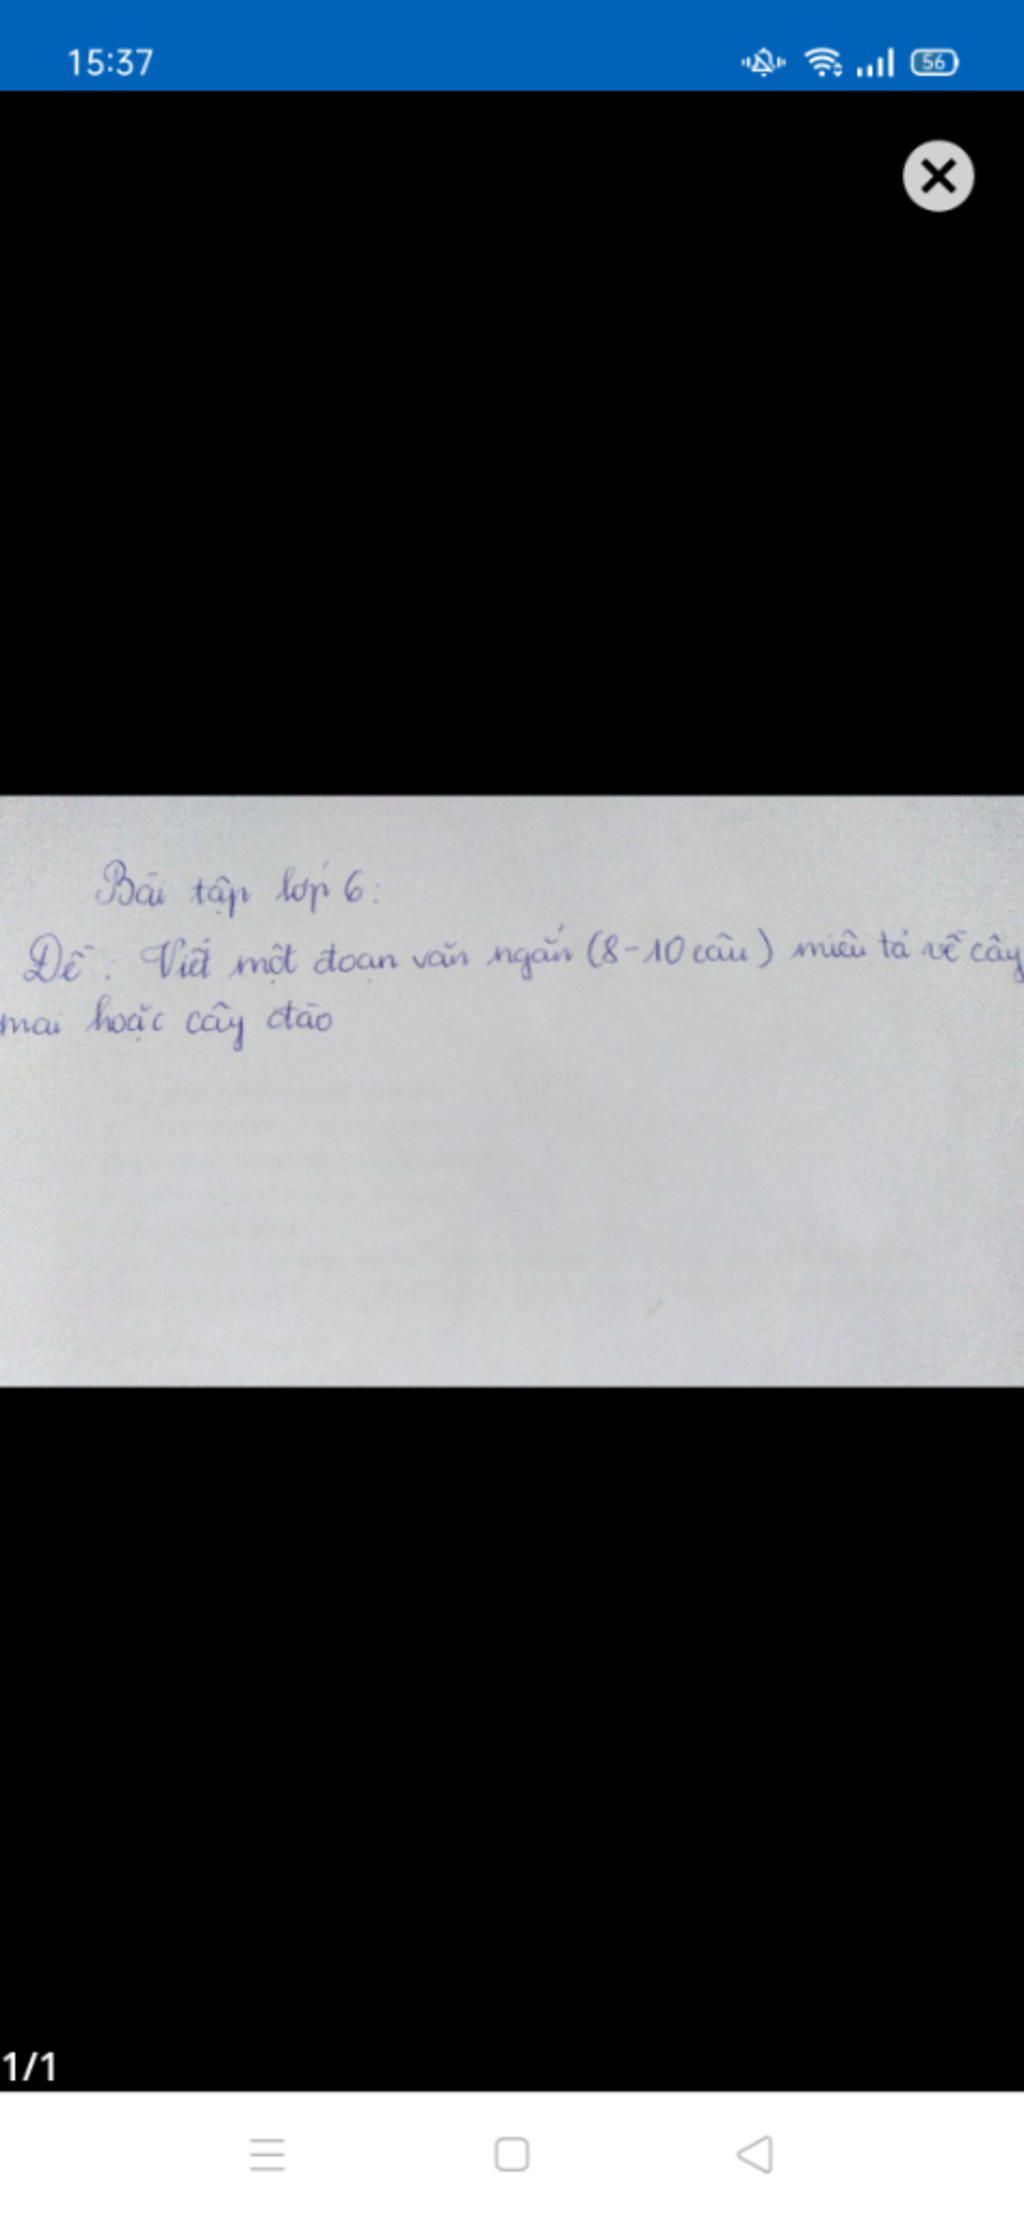 15:37
56
Bài tập lớp 6:
Đề: Viết một đoạn văn ngắn (8-10 câu) miêu tả về cây
mai hoặc cây đào
1/1